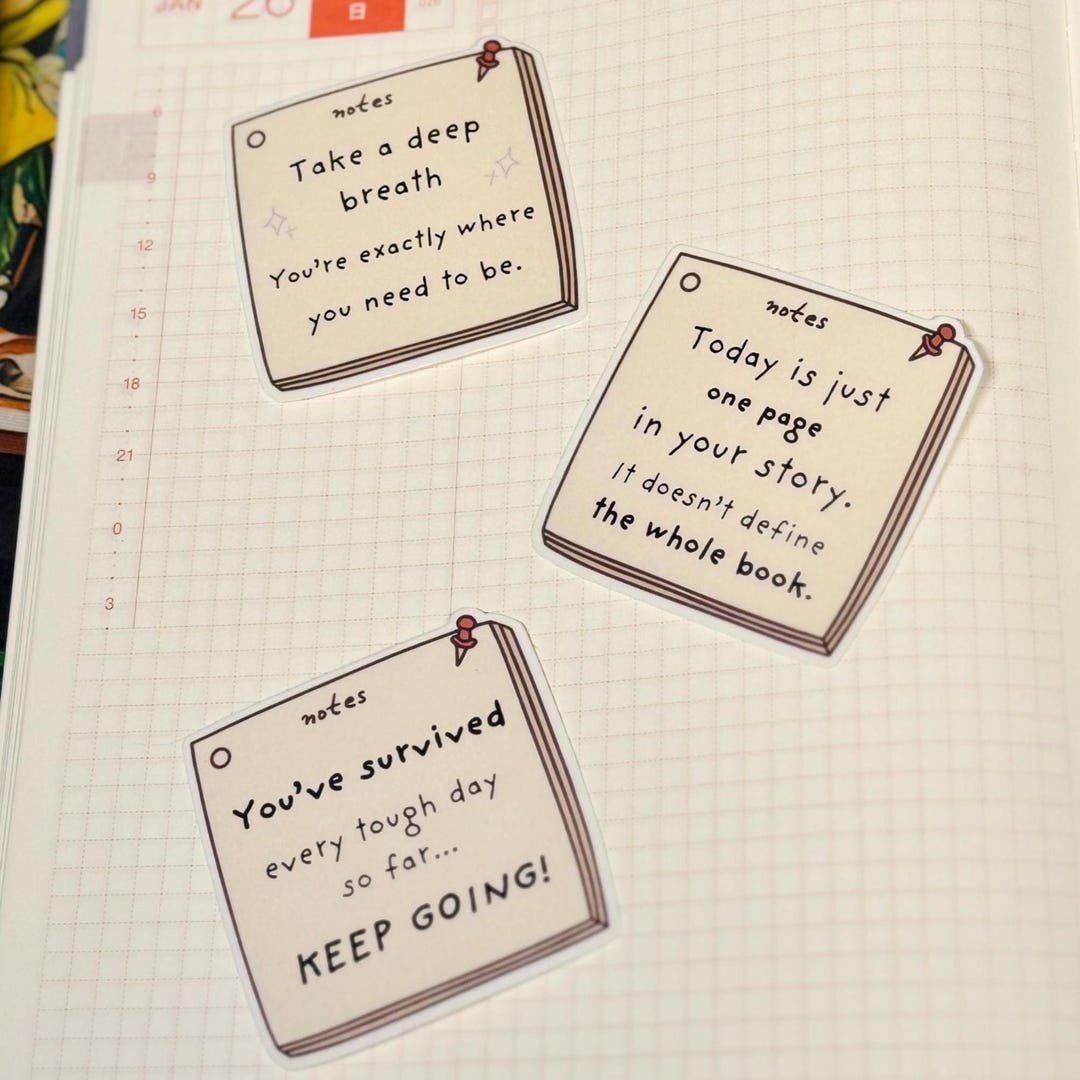 JAN
日
notes
Take a deep
breath
You're exactly where
you need to be.
notes
Today is just
one page
in your story.
It doesn't define
the whole book.
notes
You've survived
every tough day
so far...
KEEP GOING!
6
9
12
15
18
21
0
3